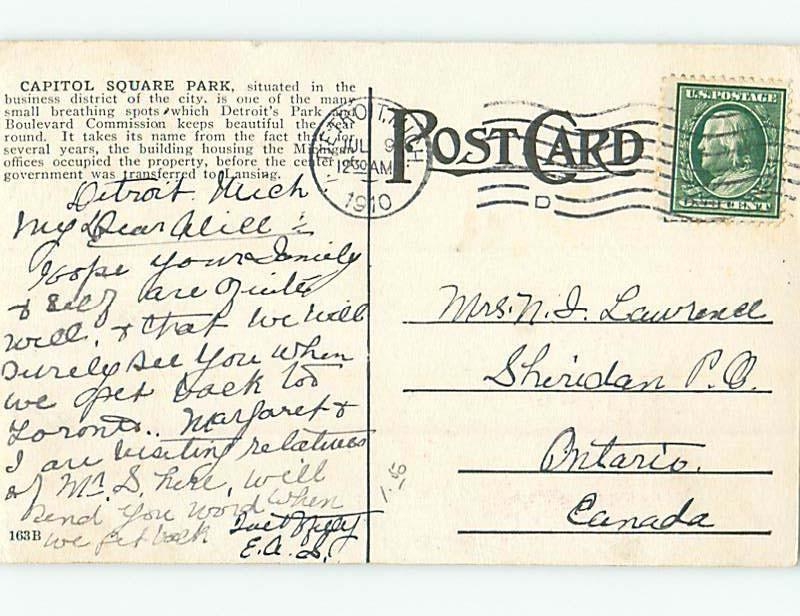 CAPITOL SQUARE PARK, situated in the
business district of the city, is one of the many
small breathing spots which Detroit's Park and
Boulevard Commission keeps beautiful the year
round. It takes its name from the fact that for
several years, the building housing the Michigan
offices occupied the property, before the center of
government was transferred to Lansing.
DETROIT, MICH
JUL 9
12 30 AM
1910
D
POST CARD
U.S. POSTAGE
ONE CENT
Detroit. Mich.
My Dear Will :-
Hope your family
& self are quite
well, & that we will
surely see you when
we get back to
Toronto.. Margaret &
I are visiting relatives
of Mr. S. here, will
send you word when
we get back
E. A. S.
163B
Mrs. N. J. Lawrence
Sheridan P.O.
Ontario.
Canada